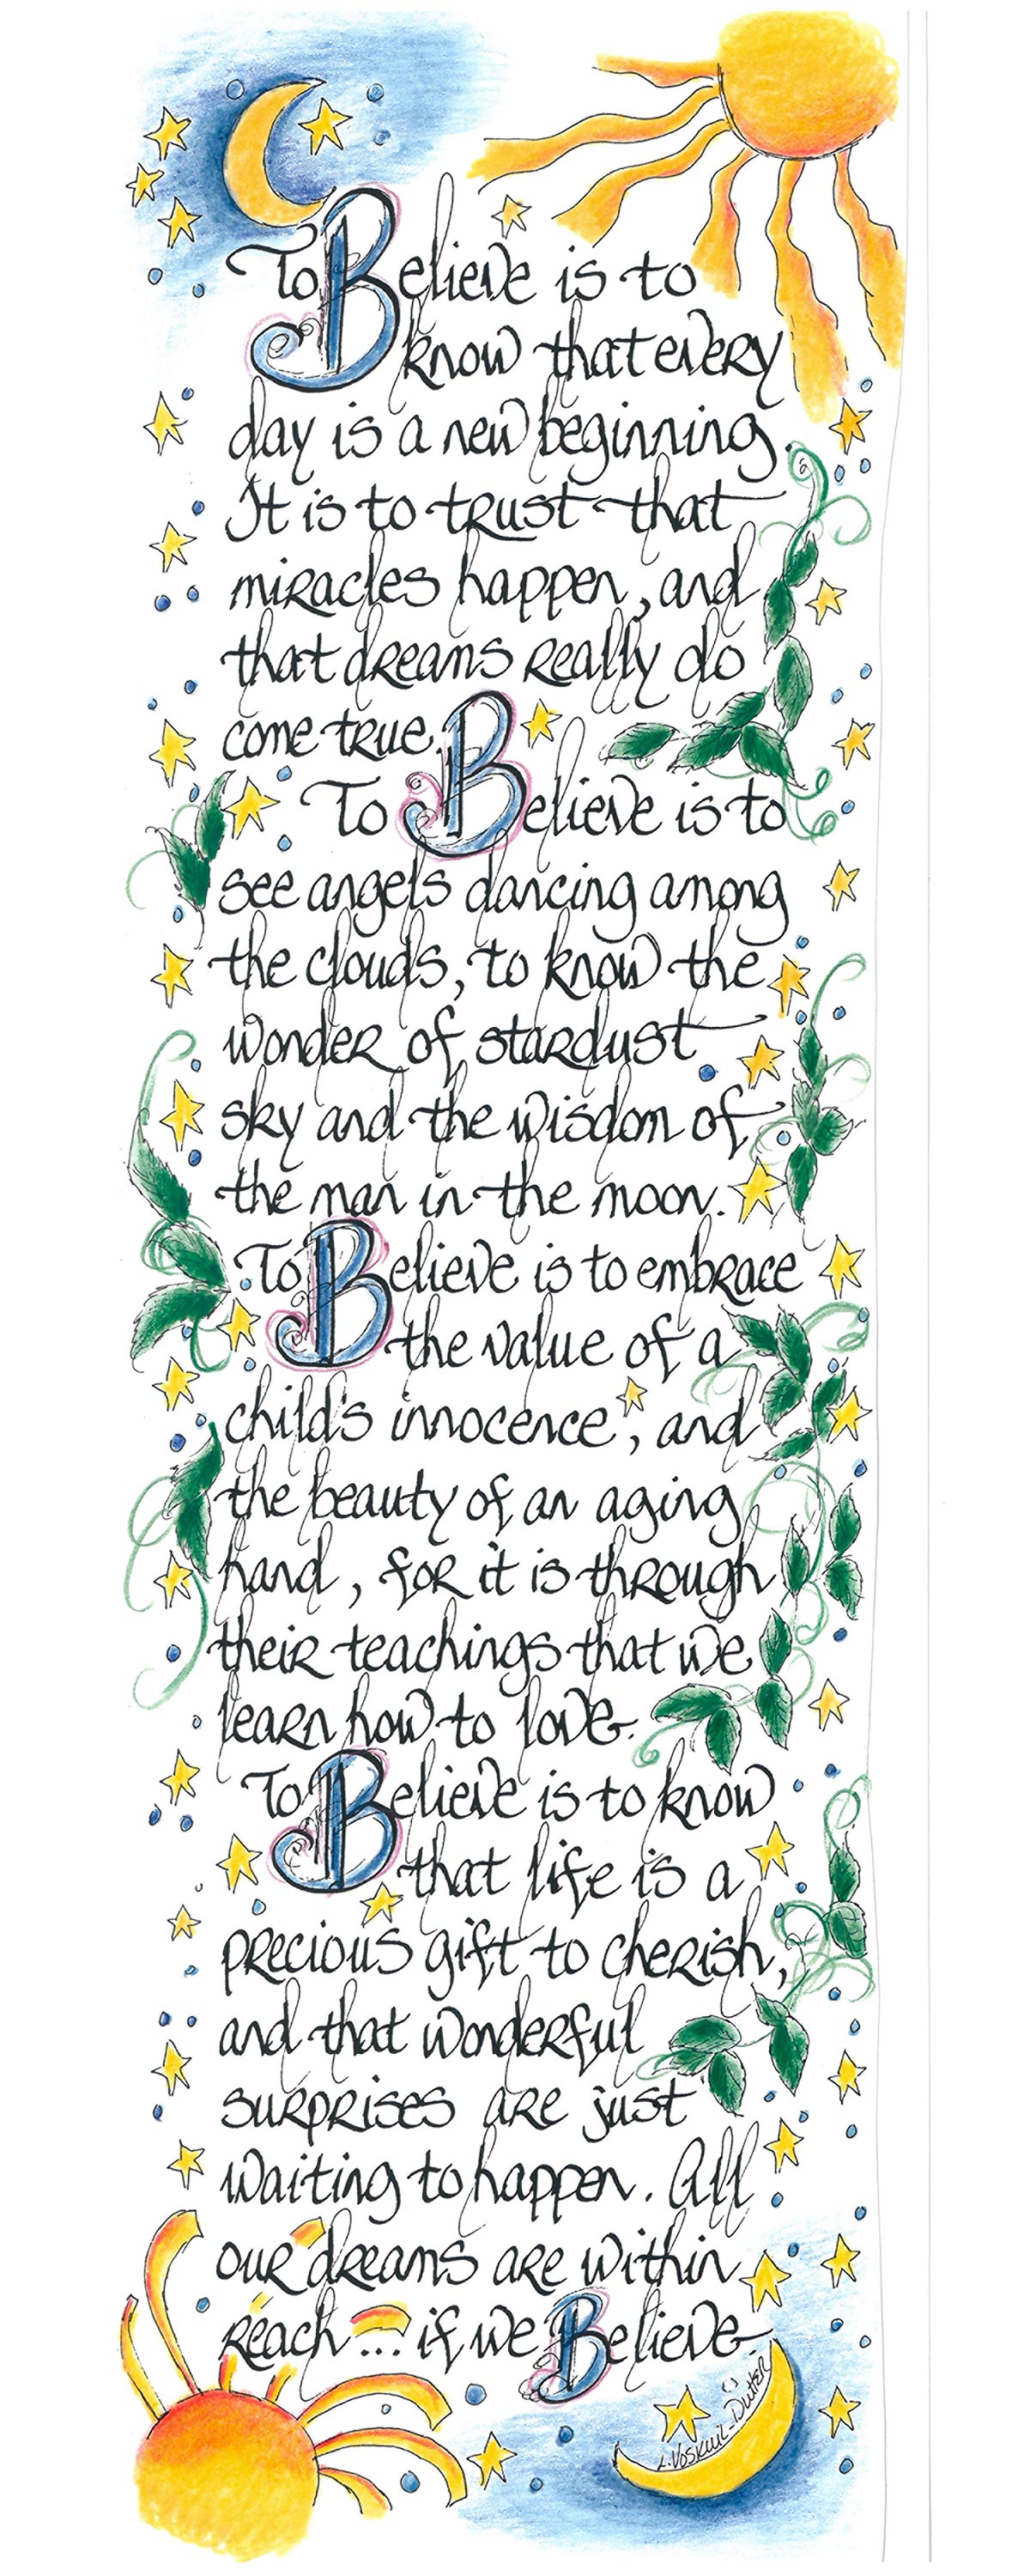 To Believe is to
know that every
day is a new beginning.
It is to trust that
miracles happen, and
that dreams really do
come true.
To Believe is to
see angels dancing among
the clouds, to know the
wonder of stardust
sky and the wisdom of
the man in the moon.
To Believe is to embrace
the value of a
child's innocence, and
the beauty of an aging
hand, for it is through
their teachings that we
learn how to love.
To Believe is to know
that life is a
precious gift to cherish,
and that wonderful
surprises are just
waiting to happen. All
our dreams are within
reach... if we Believe.
L. Voskuil-Dutter